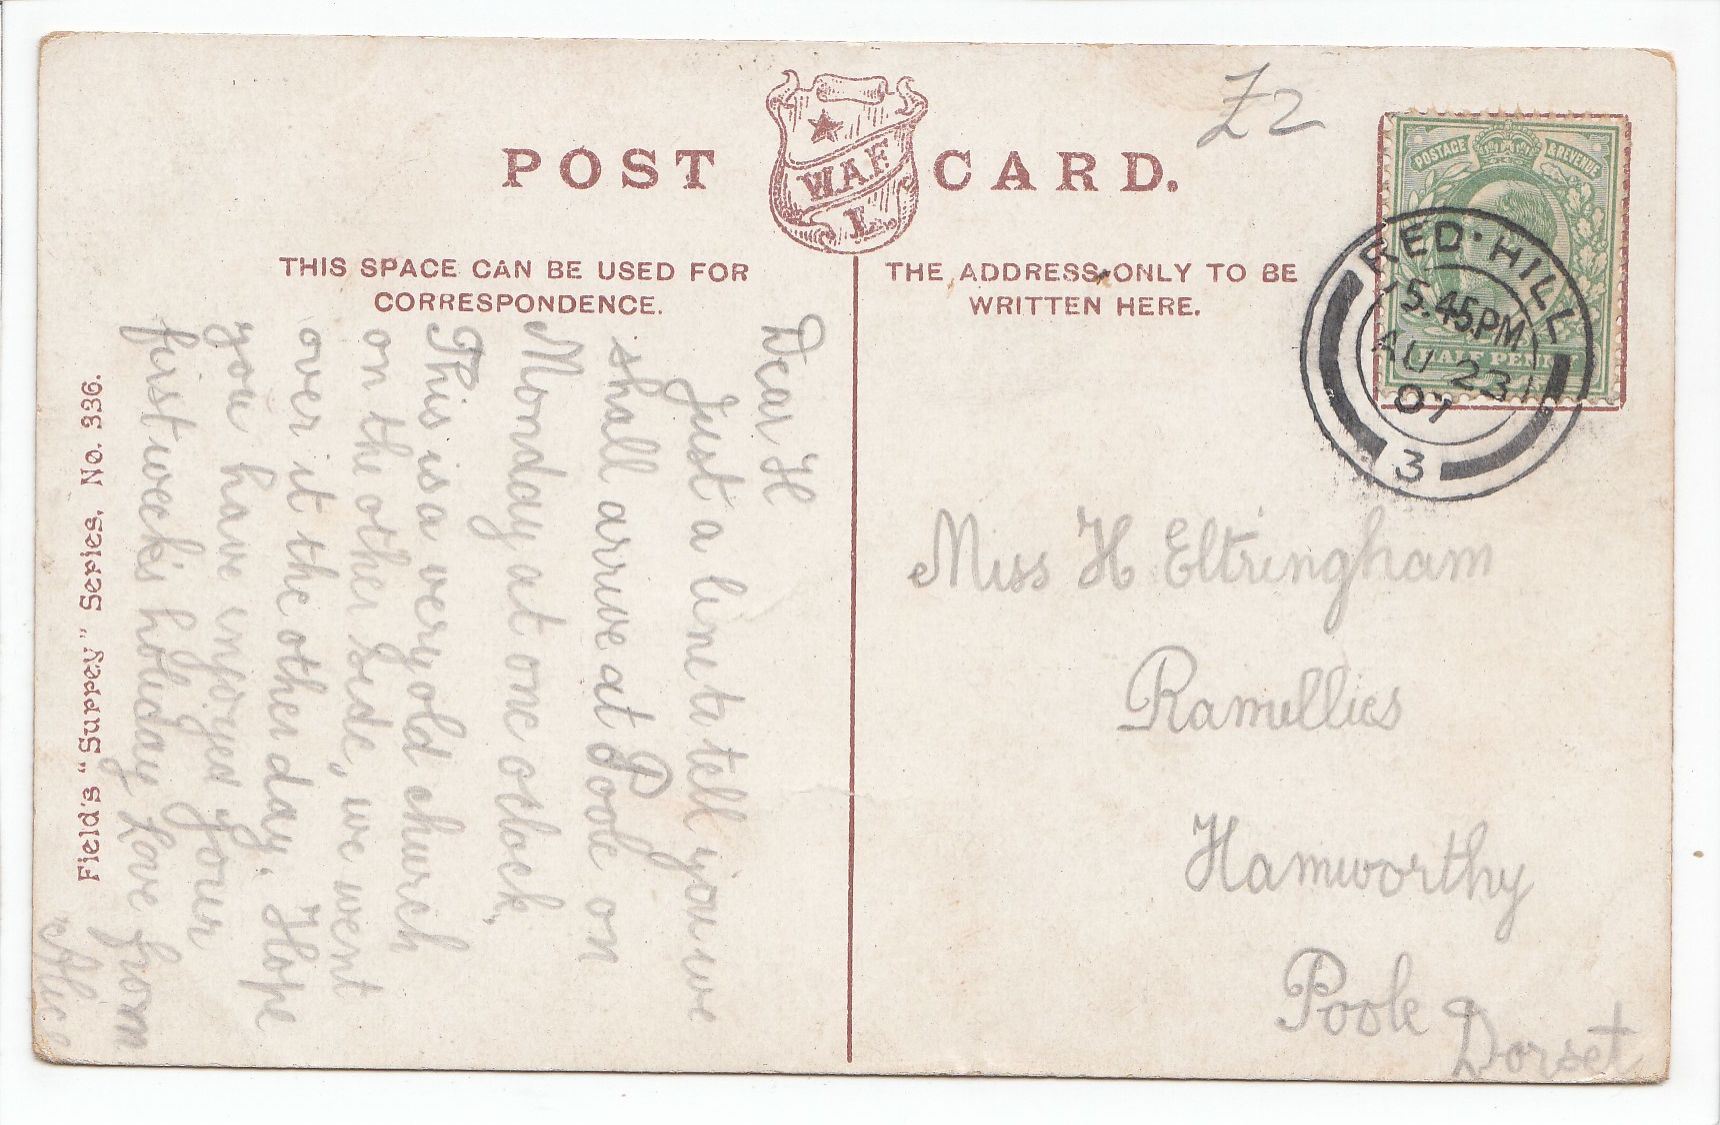 POST CARD.
W.A.F.
L.
£2
POSTAGE & REVENUE
HALF PENNY
RED HILL
5.45.PM
AU 23
07
3
THIS SPACE CAN BE USED FOR
CORRESPONDENCE.
THE ADDRESS ONLY TO BE
WRITTEN HERE.
Dear H
Just a line to tell you we
shall arrive at Poole on
Monday at one oclock.
This is a very old church
on the other side, we went
over it the other day. Hope
you have injoyed your
first week's holiday Love from
Alice
Field's "Surrey" Series. No. 336.
Miss H Eltringham
Ramillies
Hamworthy
Poole
Dorset